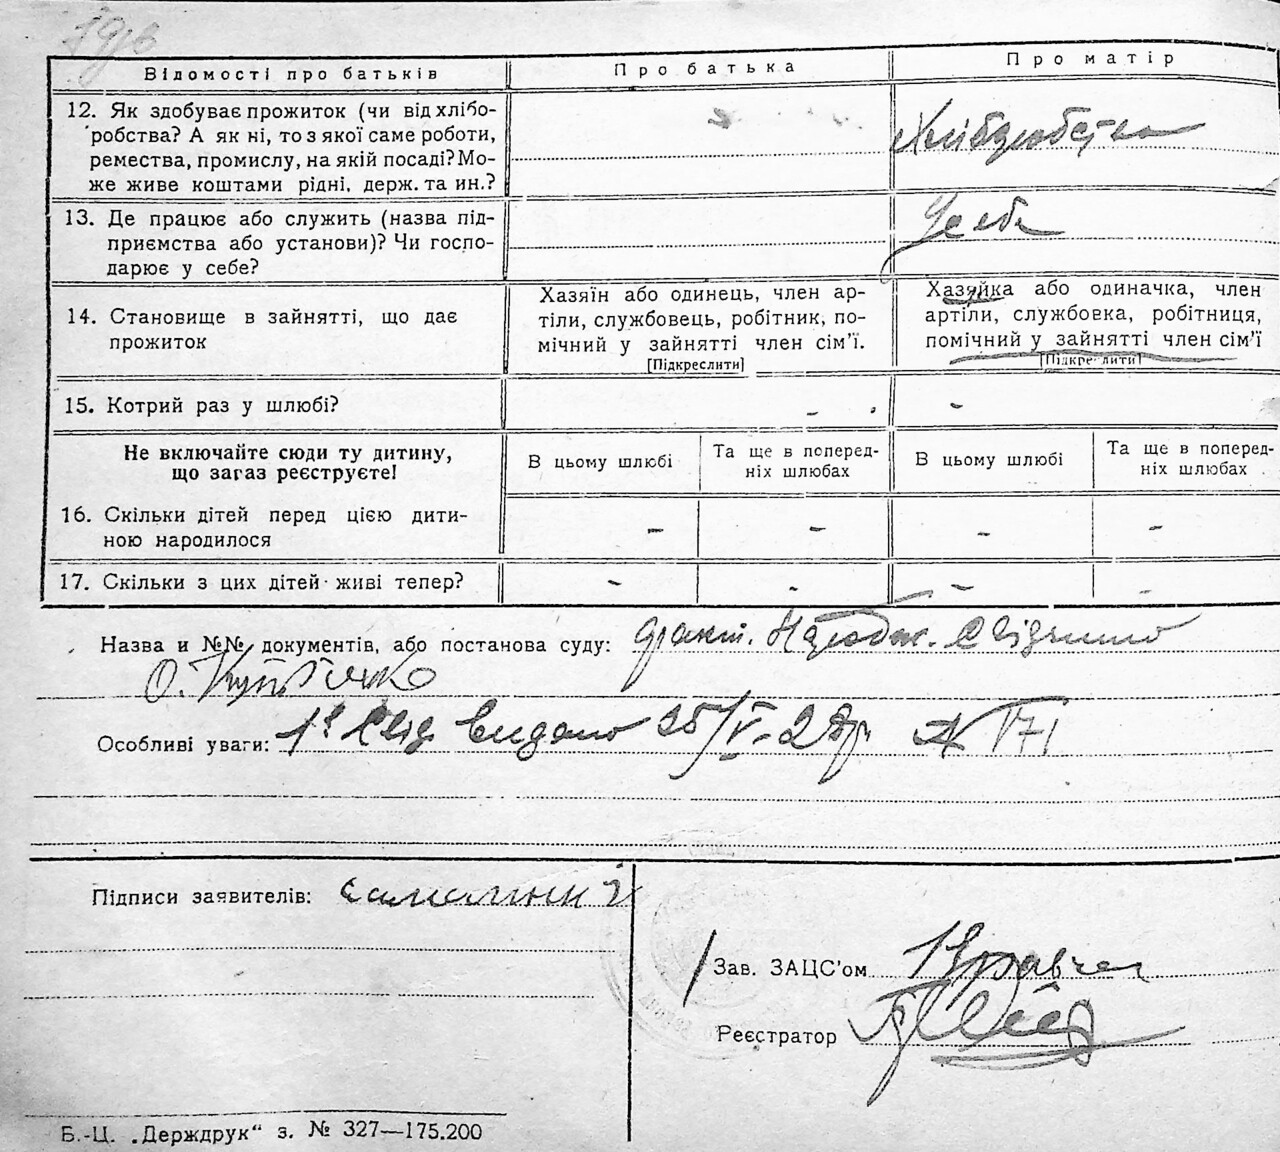 Відомості про батьків
Про батька
Про матір
12. Як здобуває прожиток (чи від хлібо-
робства? А як ні, то з якої саме роботи,
ремества, промислу, на якій посаді? Мо-
же живе коштами рідні, держ. та ин.?
Хлібороbство
13. Де працює або служить (назва під-
приємства або установи)? Чи госпо-
дарює у себе?
У себе
14. Становище в зайнятті, що дає
прожиток
Хазяїн або одинець, член ар-
тіли, службовець, робітник, по-
мічний у зайнятті член сім'ї.
[Підкреслити]
Хазяйка або одиначка, член
артіли, службовка, робітниця,
помічний у зайнятті член сім'ї
[Підкреслити]
15. Котрий раз у шлюбі?
- -
Не включайте сюди ту дитину,
що загаз реєструєте!
В цьому шлюбі
Та ще в поперед-
ніх шлюбах
В цьому шлюбі
Та ще в поперед-
ніх шлюбах
16. Скільки дітей перед цією дити-
ною народилося
- - - -
17. Скільки з цих дітей живі тепер?
- - - -
Назва и №№ документів, або постанова суду:
О.
Особливі уваги: видано 25/V-28р № 171
Підписи заявителів:
Зав. ЗАЦС'ом
Реєстратор
Б.-Ц. „Держдрук“ з. № 327—175.200